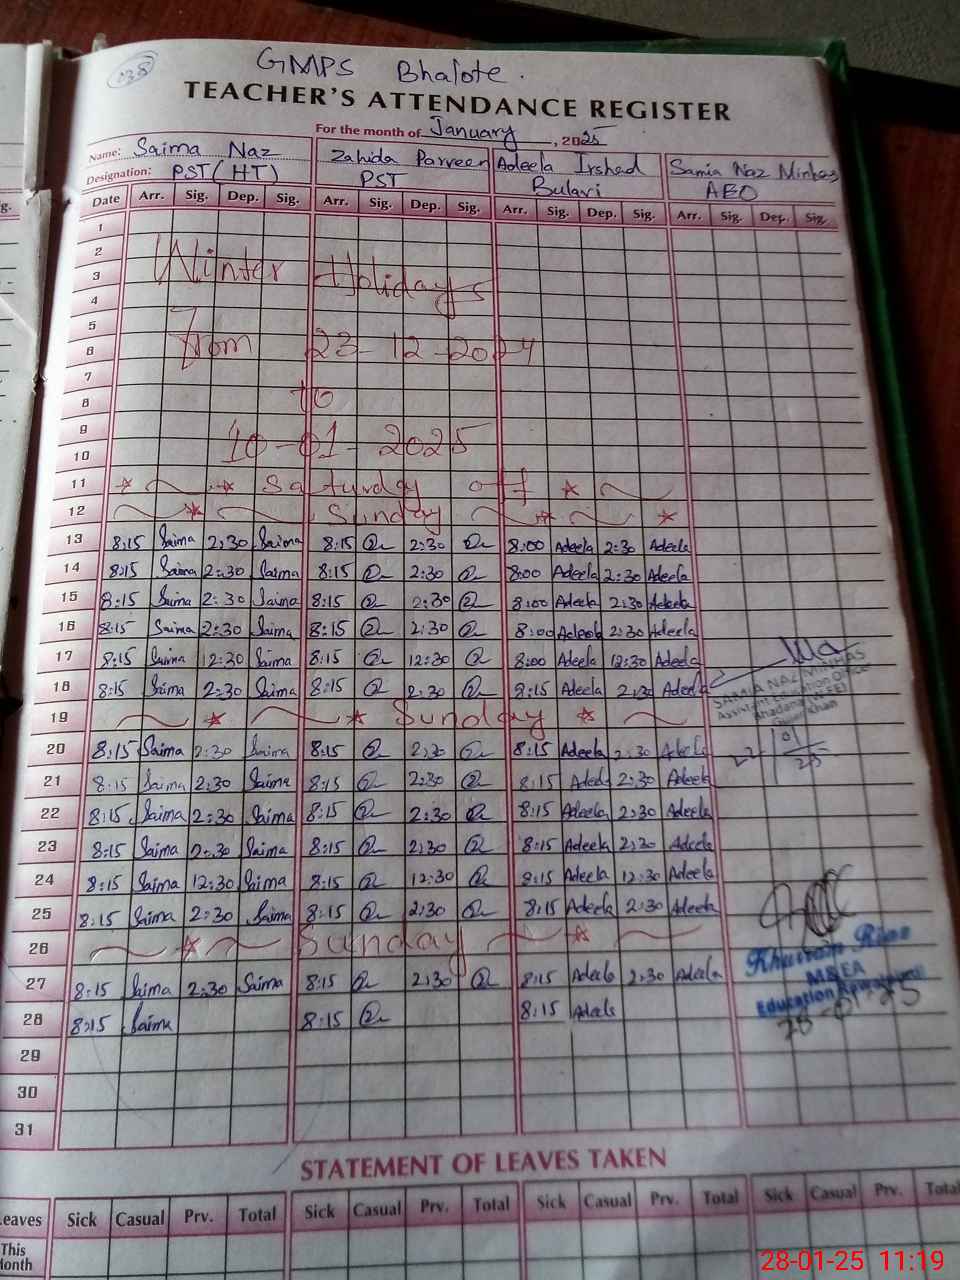 038
GMPS Bhalote.
TEACHER'S ATTENDANCE REGISTER
For the month of January, 2025
Name: Saima Naz Zahida Parveen Adeela Irshed Samia Naz Minhas
Designation: PST (HT) PST Bulavi AEO
Date Arr. Sig. Dep. Sig. Arr. Sig. Dep. Sig. Arr. Sig. Dep. Sig. Arr. Sig. Dep. Sig.
1
2
3 Winter Holidays
4
5
6 From 23-12-2024
7
8 to
9
10 10-01-2025
11 Saturday off
12 Sunday
13 8:15 Saima 2:30 Saima 8:15 2:30 8:00 Adeela 2:30 Adeela
14 8:15 Saima 2:30 Saima 8:15 2:30 8:00 Adeela 2:30 Adeela
15 8:15 Saima 2:30 Saima 8:15 2:30 8:00 Adeela 2:30 Adeela
16 8:15 Saima 2:30 Saima 8:15 2:30 8:00 Adeela 2:30 Adeela
17 8:15 Saima 12:30 Saima 8:15 12:30 8:00 Adeela 12:30 Adeela
18 8:15 Saima 2:30 Saima 8:15 2:30 8:15 Adeela 2:30 Adeela
SAMIA NAZ MINHAS
Assistant Education Officer
19 Sunday
20 8:15 Saima 2:30 Saima 8:15 2:30 8:15 Adeela 2:30 Adeela
21 8:15 Saima 2:30 Saima 8:15 2:30 8:15 Adeela 2:30 Adeela
22 8:15 Saima 2:30 Saima 8:15 2:30 8:15 Adeela 2:30 Adeela
23 8:15 Saima 2:30 Saima 8:15 2:30 8:15 Adeela 2:30 Adeela
24 8:15 Saima 12:30 Saima 8:15 12:30 8:15 Adeela 12:30 Adeela
25 8:15 Saima 2:30 Saima 8:15 2:30 8:15 Adeela 2:30 Adeela
26 Sunday
27 8:15 Saima 2:30 Saima 8:15 2:30 8:15 Adeela 2:30 Adeela
28 8:15 Saima 8:15 8:15 Adeela
Khurram Riaz
MEA
Education Rawalpindi
28-01-25
29
30
31
STATEMENT OF LEAVES TAKEN
Leaves Sick Casual Prv. Total Sick Casual Prv. Total Sick Casual Prv. Total Sick Casual Prv. Total
This
Month
28-01-25 11:19